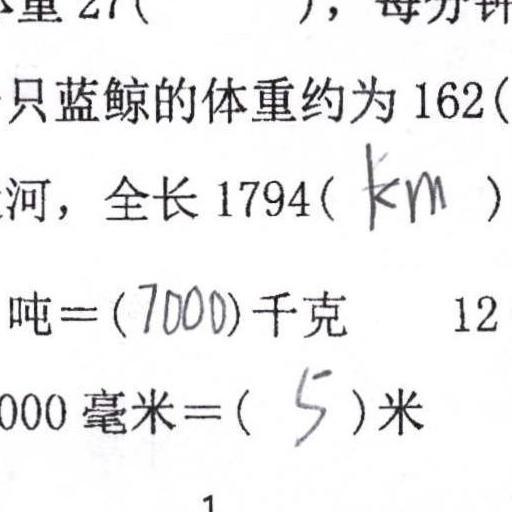 重 27( ), 每分钟
只蓝鲸的体重约为 162(
河，全长 1794( km )
吨＝(7000)千克 12
000 毫米＝( 5 )米
1